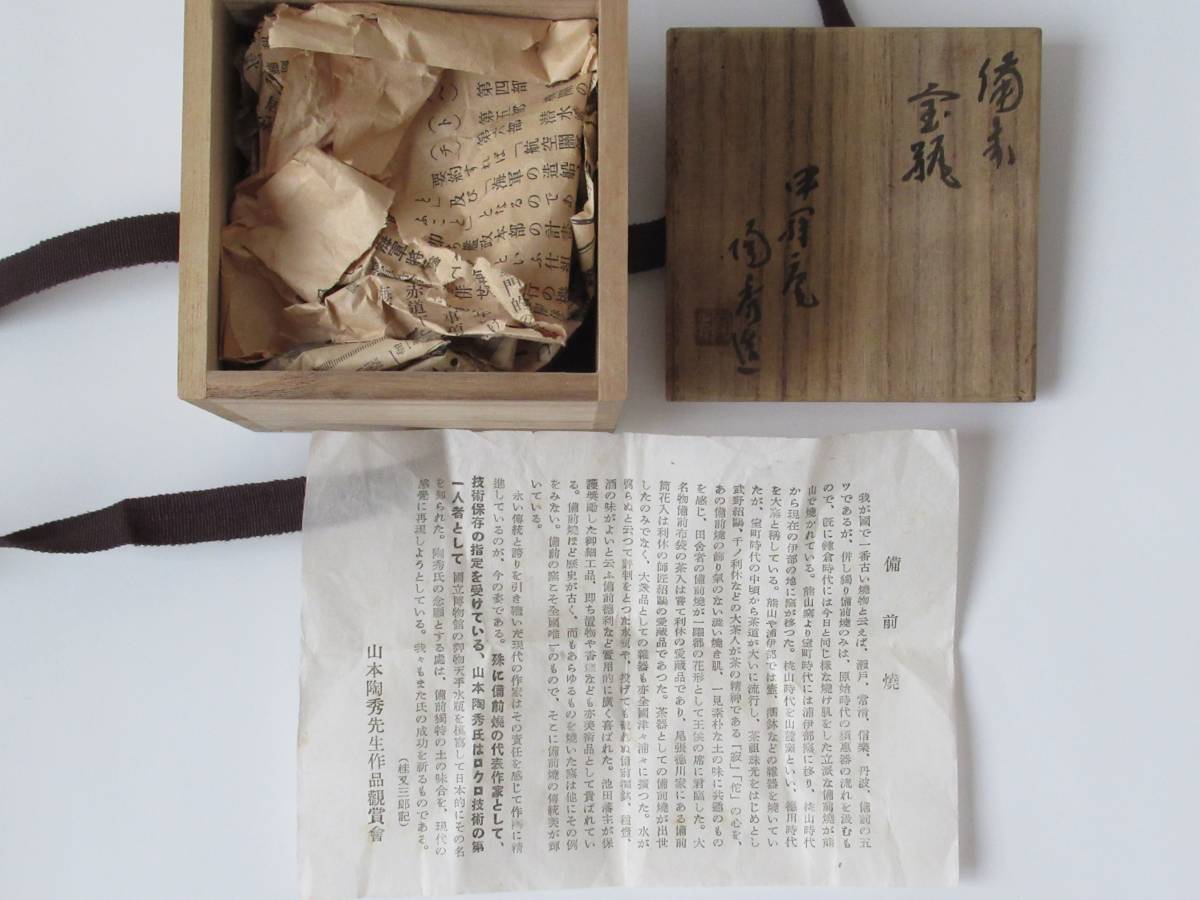 備前
宝瓶
陶秀造
第四部
第五部
第六部
潜水
航空關
要約すれば「海軍の造船
と」及び「
となるので
ふこと
艦政本部の計
といふ仕組
赤道
備前燒
我が國で一番古い燒物と云えば、瀬戸、常滑、信樂、丹波、備前の五
ツであるが、併し獨り備前燒のみは、原始時代の須惠器の流れを汲むも
ので、既に鎌倉時代には今日と同じ様な燒け肌をした立派な備前燒が熊
山で燒かれている。熊山窯より室町時代には浦伊部窯に移り、桃山時代
から現在の伊部の地に窯が移つた。桃山時代を古備前といい、徳川時代
を大窯と稱している。熊山や浦伊部では壷、擂鉢などの雜器を燒いてい
たが、室町時代の中頃から茶道が大いに流行し、茶祖珠光をはじめとし
武野紹鷗、千ノ利休などの大茶人が茶の精神である「寂」「侘」の心を、
あの備前燒の飾り氣のない澁い燒き肌、一見素朴な土の味に共通のもの
を感じ、田舎者の備前燒が一躍器の花形として王侯の席に君臨した。大
名物備前布袋の茶入は嘗て利休の愛藏品であり、尾張徳川家にある備前
筒花入は利休の師匠紹鷗の愛藏品であつた。茶器としての備前燒が出世
したのみでなく、大衆品としての雜器も亦全國津々浦々に擴つた。水が
腐らぬと云つて評判をとつた水瓶や、投げても破れぬ備前擂鉢、種壷、
酒の味がよいと云ふ備前徳利など實用的に廣く喜ばれた。池田藩主が保
護奬勵した御細工品、即ち置物や香爐なども亦美術品として賞ばれてい
る。備前燒ほど歴史が古く、而もあらゆるものを燒いた窯は他にその例
をみない。備前の窯こそ全國唯一のもので、そこに備前燒の傳統美が輝
いている。
永い傳統と誇りを引き繼いだ現代の作家はその責任を感じて作陶に精
進しているのが、今の姿である。殊に備前燒の代表作家として、
技術保存の指定を受けている、山本陶秀氏はロクロ技術の第
一人者として國立博物館の御物天平水瓶を模寫して日本的にその名
を知られた。陶秀氏の念願とする處は、備前獨特の土の味合を、現代の
感覺に再現しようとしている。我々もまた氏の成功を祈るものである。
（桂又三郎記）
山本陶秀先生作品觀賞會